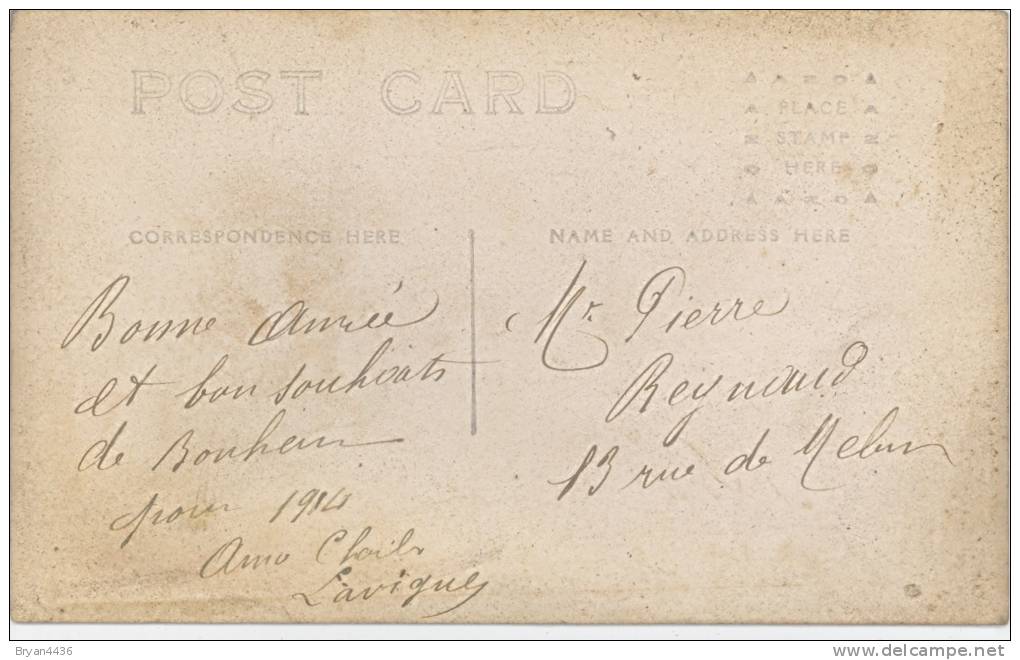 POST CARD
AZOA
PLACE
STAMP
HERE
AZOA
CORRESPONDENCE HERE
NAME AND ADDRESS HERE
Bonne année
et bon souhiats
de Bonheur
pour 1914
Lavigne
Mr. Pierre
Reynaud
13 rue de Melun
Bryan4436
delcampe.net